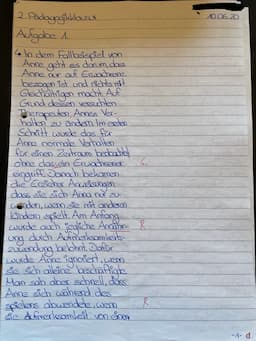 2. Pädagogikklausur 10.06.20
Aufgabe 1
In dem Fallbeispiel von
Anne geht es darum, dass
Anne nur auf Erwachsene
bezogen ist und nichts mit
Gleichaltrigen macht. Auf
Grund dessen versuchten
Therapeuten Annes Ver-
halten zu ändern. Im ersten
Schritt wurde das für
Anne normale Verhalten
für einen Zeitraum beobachtet
ohne dass ein Erwachsener
eingriff. Danach bekamen
die Erzieher Anweisungen
dass sie sich Anna nur zu-
wenden, wenn sie mit anderen
Kindern spielt. Am Anfang
wurde auch jegliche Annäher-
ung durch Aufmerksamkeits-
zuwendung belohnt. Dafür
wurde Anne ignoriert, wenn
sie sich alleine beschäftigte.
Man sah aber schnell, dass
Anne sich während des
spielens abwendete, wenn
sie Aufmerksamkeit von einem
G.
R
R
-1-